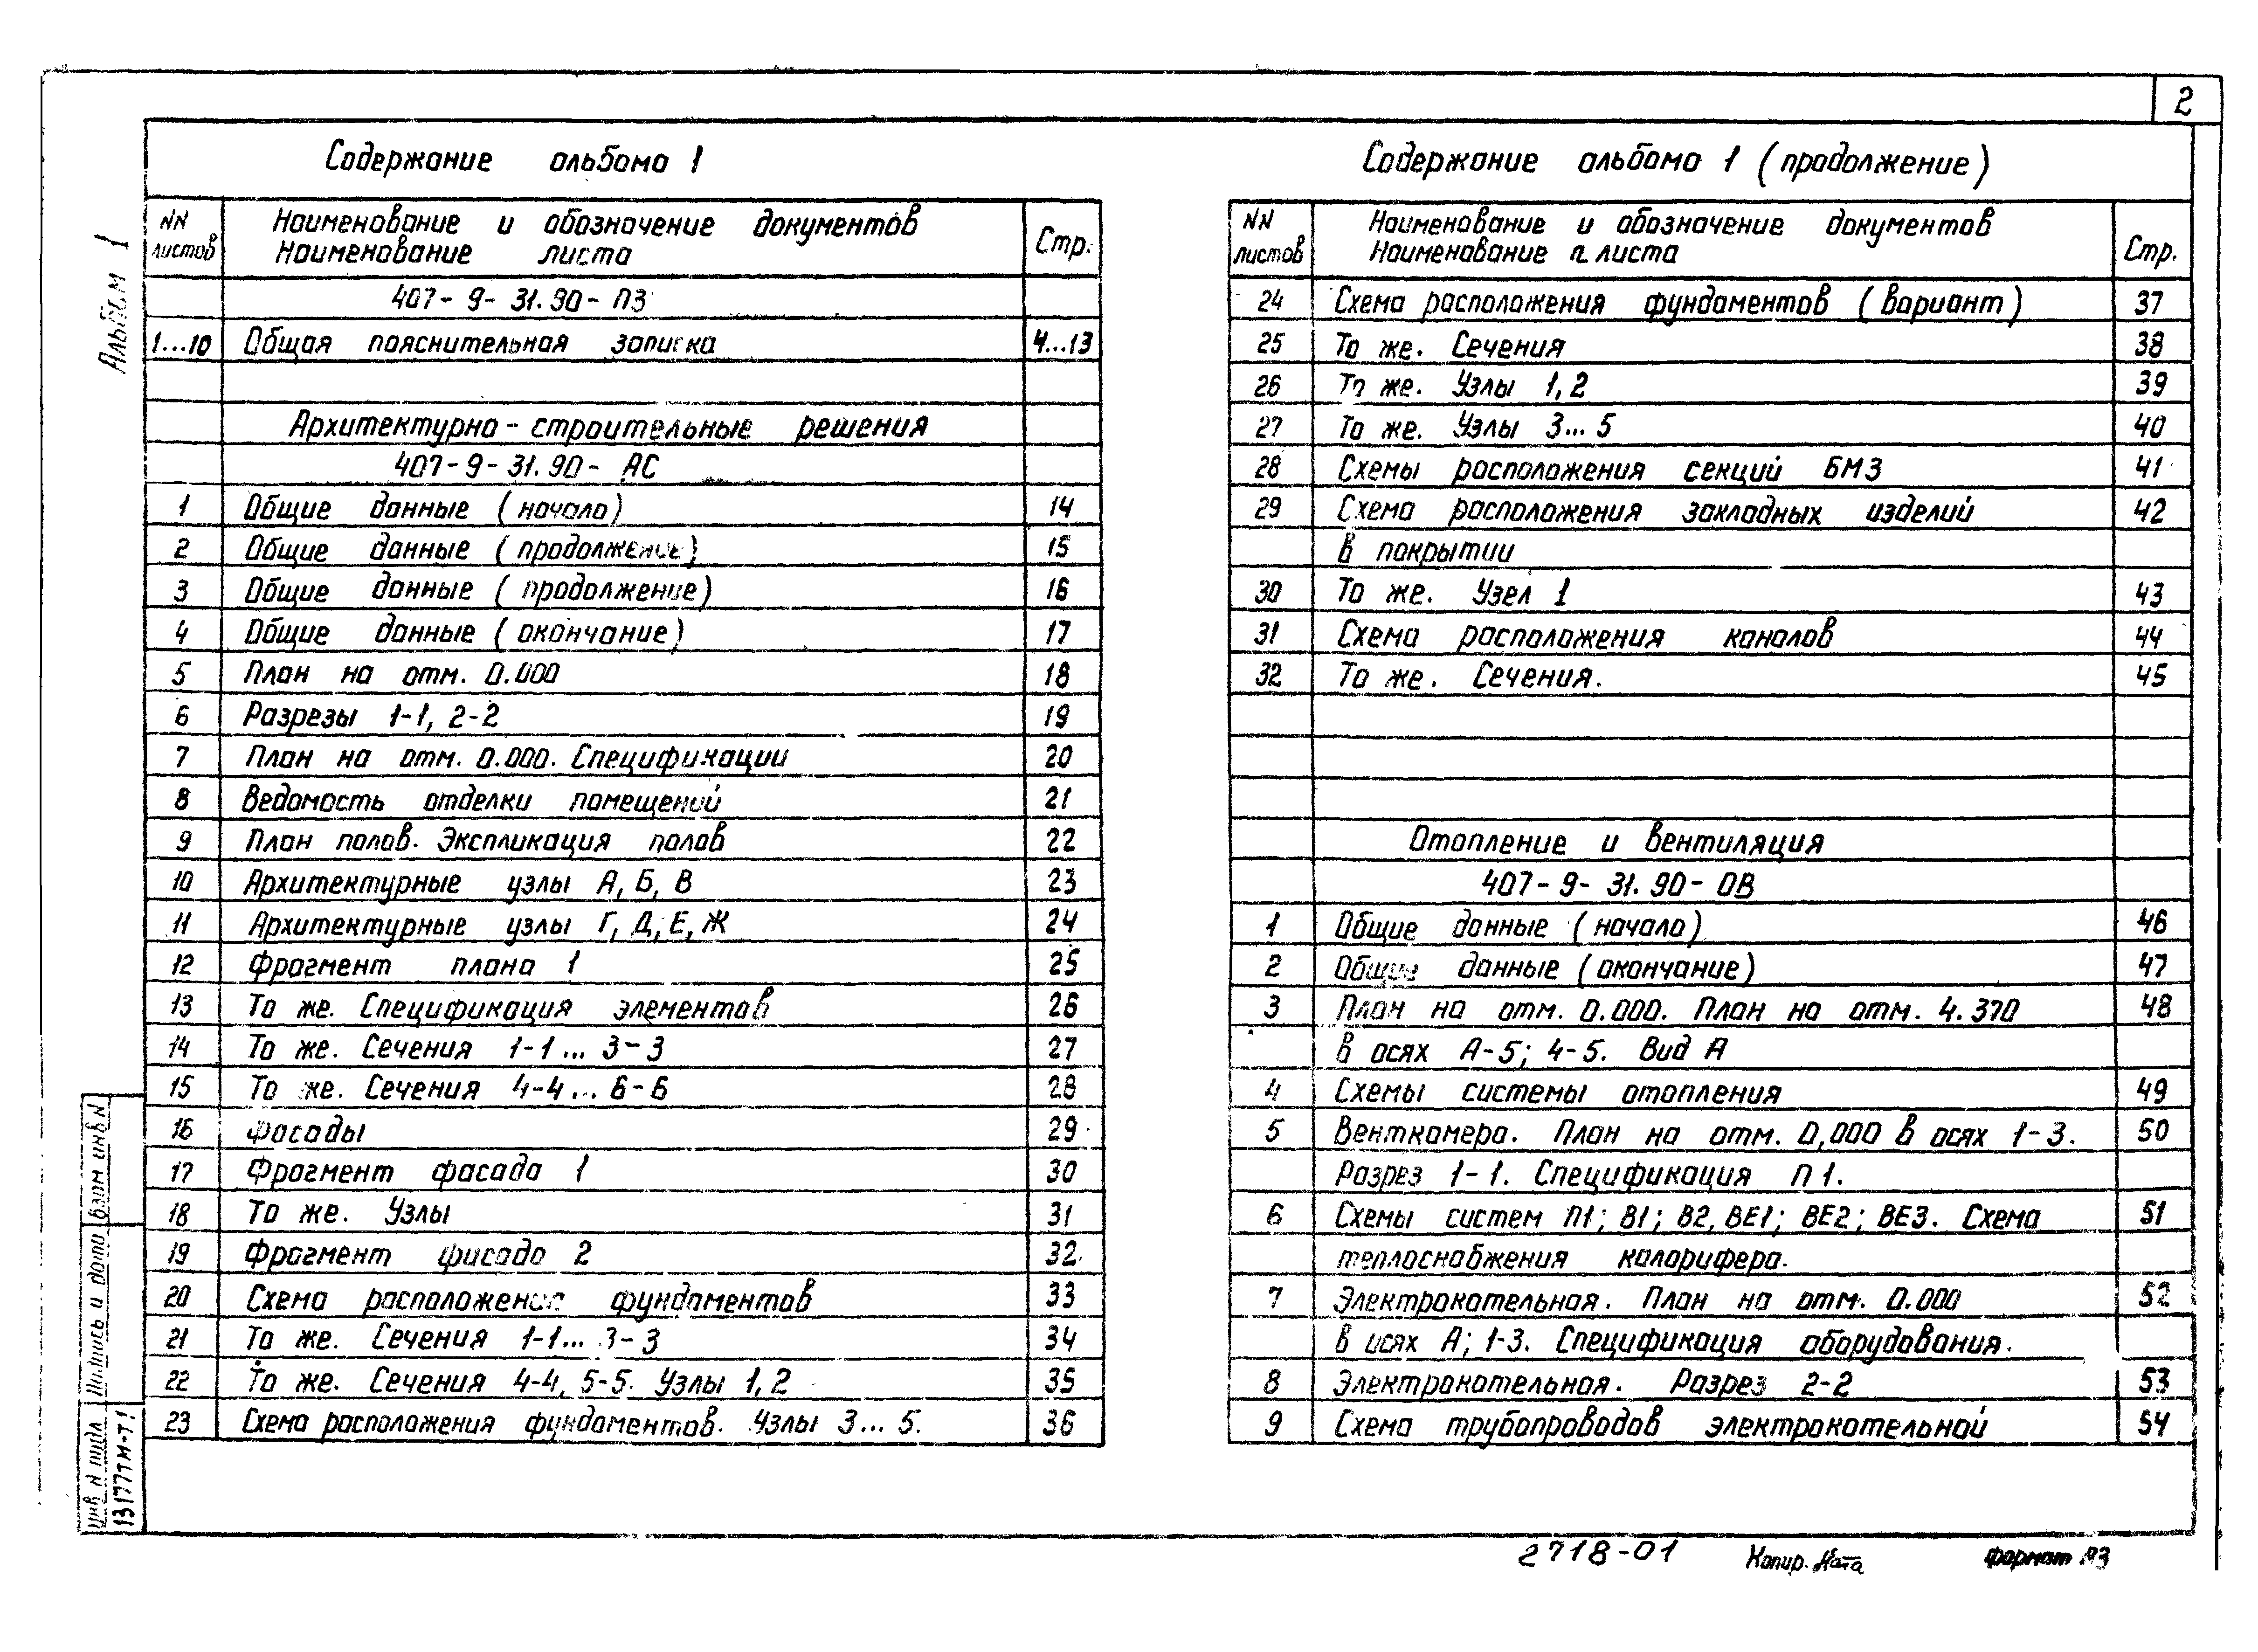 2
Альбом 1
Содержание альбома 1
NN листов
Наименование и обозначение документов
Наименование листа
Стр.
407-9-31.90-ПЗ
1...10 Общая пояснительная записка 4...13
Архитектурно-строительные решения
407-9-31.90-АС
1 Общие данные (начало) 14
2 Общие данные (продолжение) 15
3 Общие данные (продолжение) 16
4 Общие данные (окончание) 17
5 План на отм. 0.000 18
6 Разрезы 1-1, 2-2 19
7 План на отм. 0.000. Спецификации 20
8 Ведомость отделки помещений 21
9 План полов. Экспликация полов 22
10 Архитектурные узлы А, Б, В 23
11 Архитектурные узлы Г, Д, Е, Ж 24
12 Фрагмент плана 1 25
13 То же. Спецификация элементов 26
14 То же. Сечения 1-1... 3-3 27
15 То же. Сечения 4-4... 6-6 28
16 Фасады 29
17 Фрагмент фасада 1 30
18 То же. Узлы 31
19 Фрагмент фасада 2 32
20 Схема расположения фундаментов 33
21 То же. Сечения 1-1... 3-3 34
22 То же. Сечения 4-4, 5-5. Узлы 1, 2 35
23 Схема расположения фундаментов. Узлы 3... 5. 36
Содержание альбома 1 (продолжение)
NN листов
Наименование и обозначение документов
Наименование листа
Стр.
24 Схема расположения фундаментов (вариант) 37
25 То же. Сечения 38
26 То же. Узлы 1, 2 39
27 То же. Узлы 3... 5 40
28 Схемы расположения секций БМЗ 41
29 Схема расположения закладных изделий 42
в покрытии
30 То же. Узел 1 43
31 Схема расположения каналов 44
32 То же. Сечения. 45
Отопление и вентиляция
407-9-31.90-ОВ
1 Общие данные (начало) 46
2 Общие данные (окончание) 47
3 План на отм. 0.000. План на отм. 4.370 48
в осях А-Б; 4-5. Вид А
4 Схемы системы отопления 49
5 Венткамера. План на отм. 0,000 в осях 1-3. 50
Разрез 1-1. Спецификация П1.
6 Схемы систем П1; В1; В2, ВЕ1; ВЕ2; ВЕ3. Схема 51
теплоснабжения калорифера.
7 Электрокотельная. План на отм. 0.000 52
в осях А; 1-3. Спецификация оборудования.
8 Электрокотельная. Разрез 2-2 53
9 Схема трубопроводов электрокотельной 54
Взам инв N
Подпись и дата
Инв N подл
13177тм-т1
2718-01
Копир. Ната
Формат А3